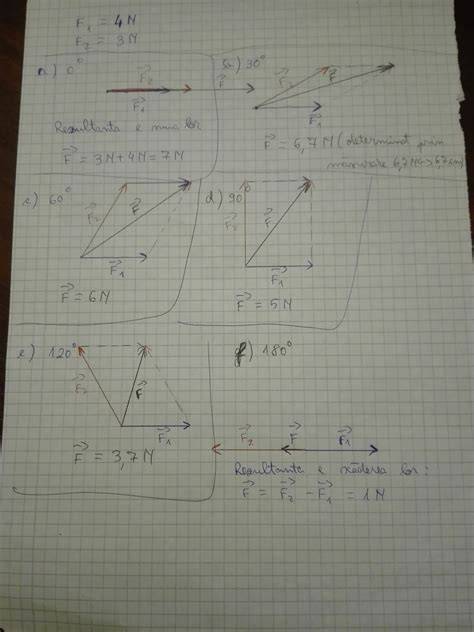 F₁ = 4N
F₂ = 3N
a) 0°
F⃗₂
F⃗
F⃗₁
Rezultanta e suma lor
F⃗ = 3N+4N = 7N
b) 30°
F⃗₂
F⃗
F⃗₁
F⃗ = 6,7N (determinat prin
măsurare 6,7N<->6,7cm)
c) 60°
F⃗₂
F⃗
F⃗₁
F⃗ = 6N
d) 90°
F⃗₂
F⃗
F⃗₁
F⃗ = 5N
e) 120°
F⃗₂
F⃗
F⃗₁
F⃗ = 3,7N
f) 180°
F⃗₂
F⃗
F⃗₁
Rezultanta e scăderea lor:
F⃗ = F⃗₂ - F⃗₁ = 1N